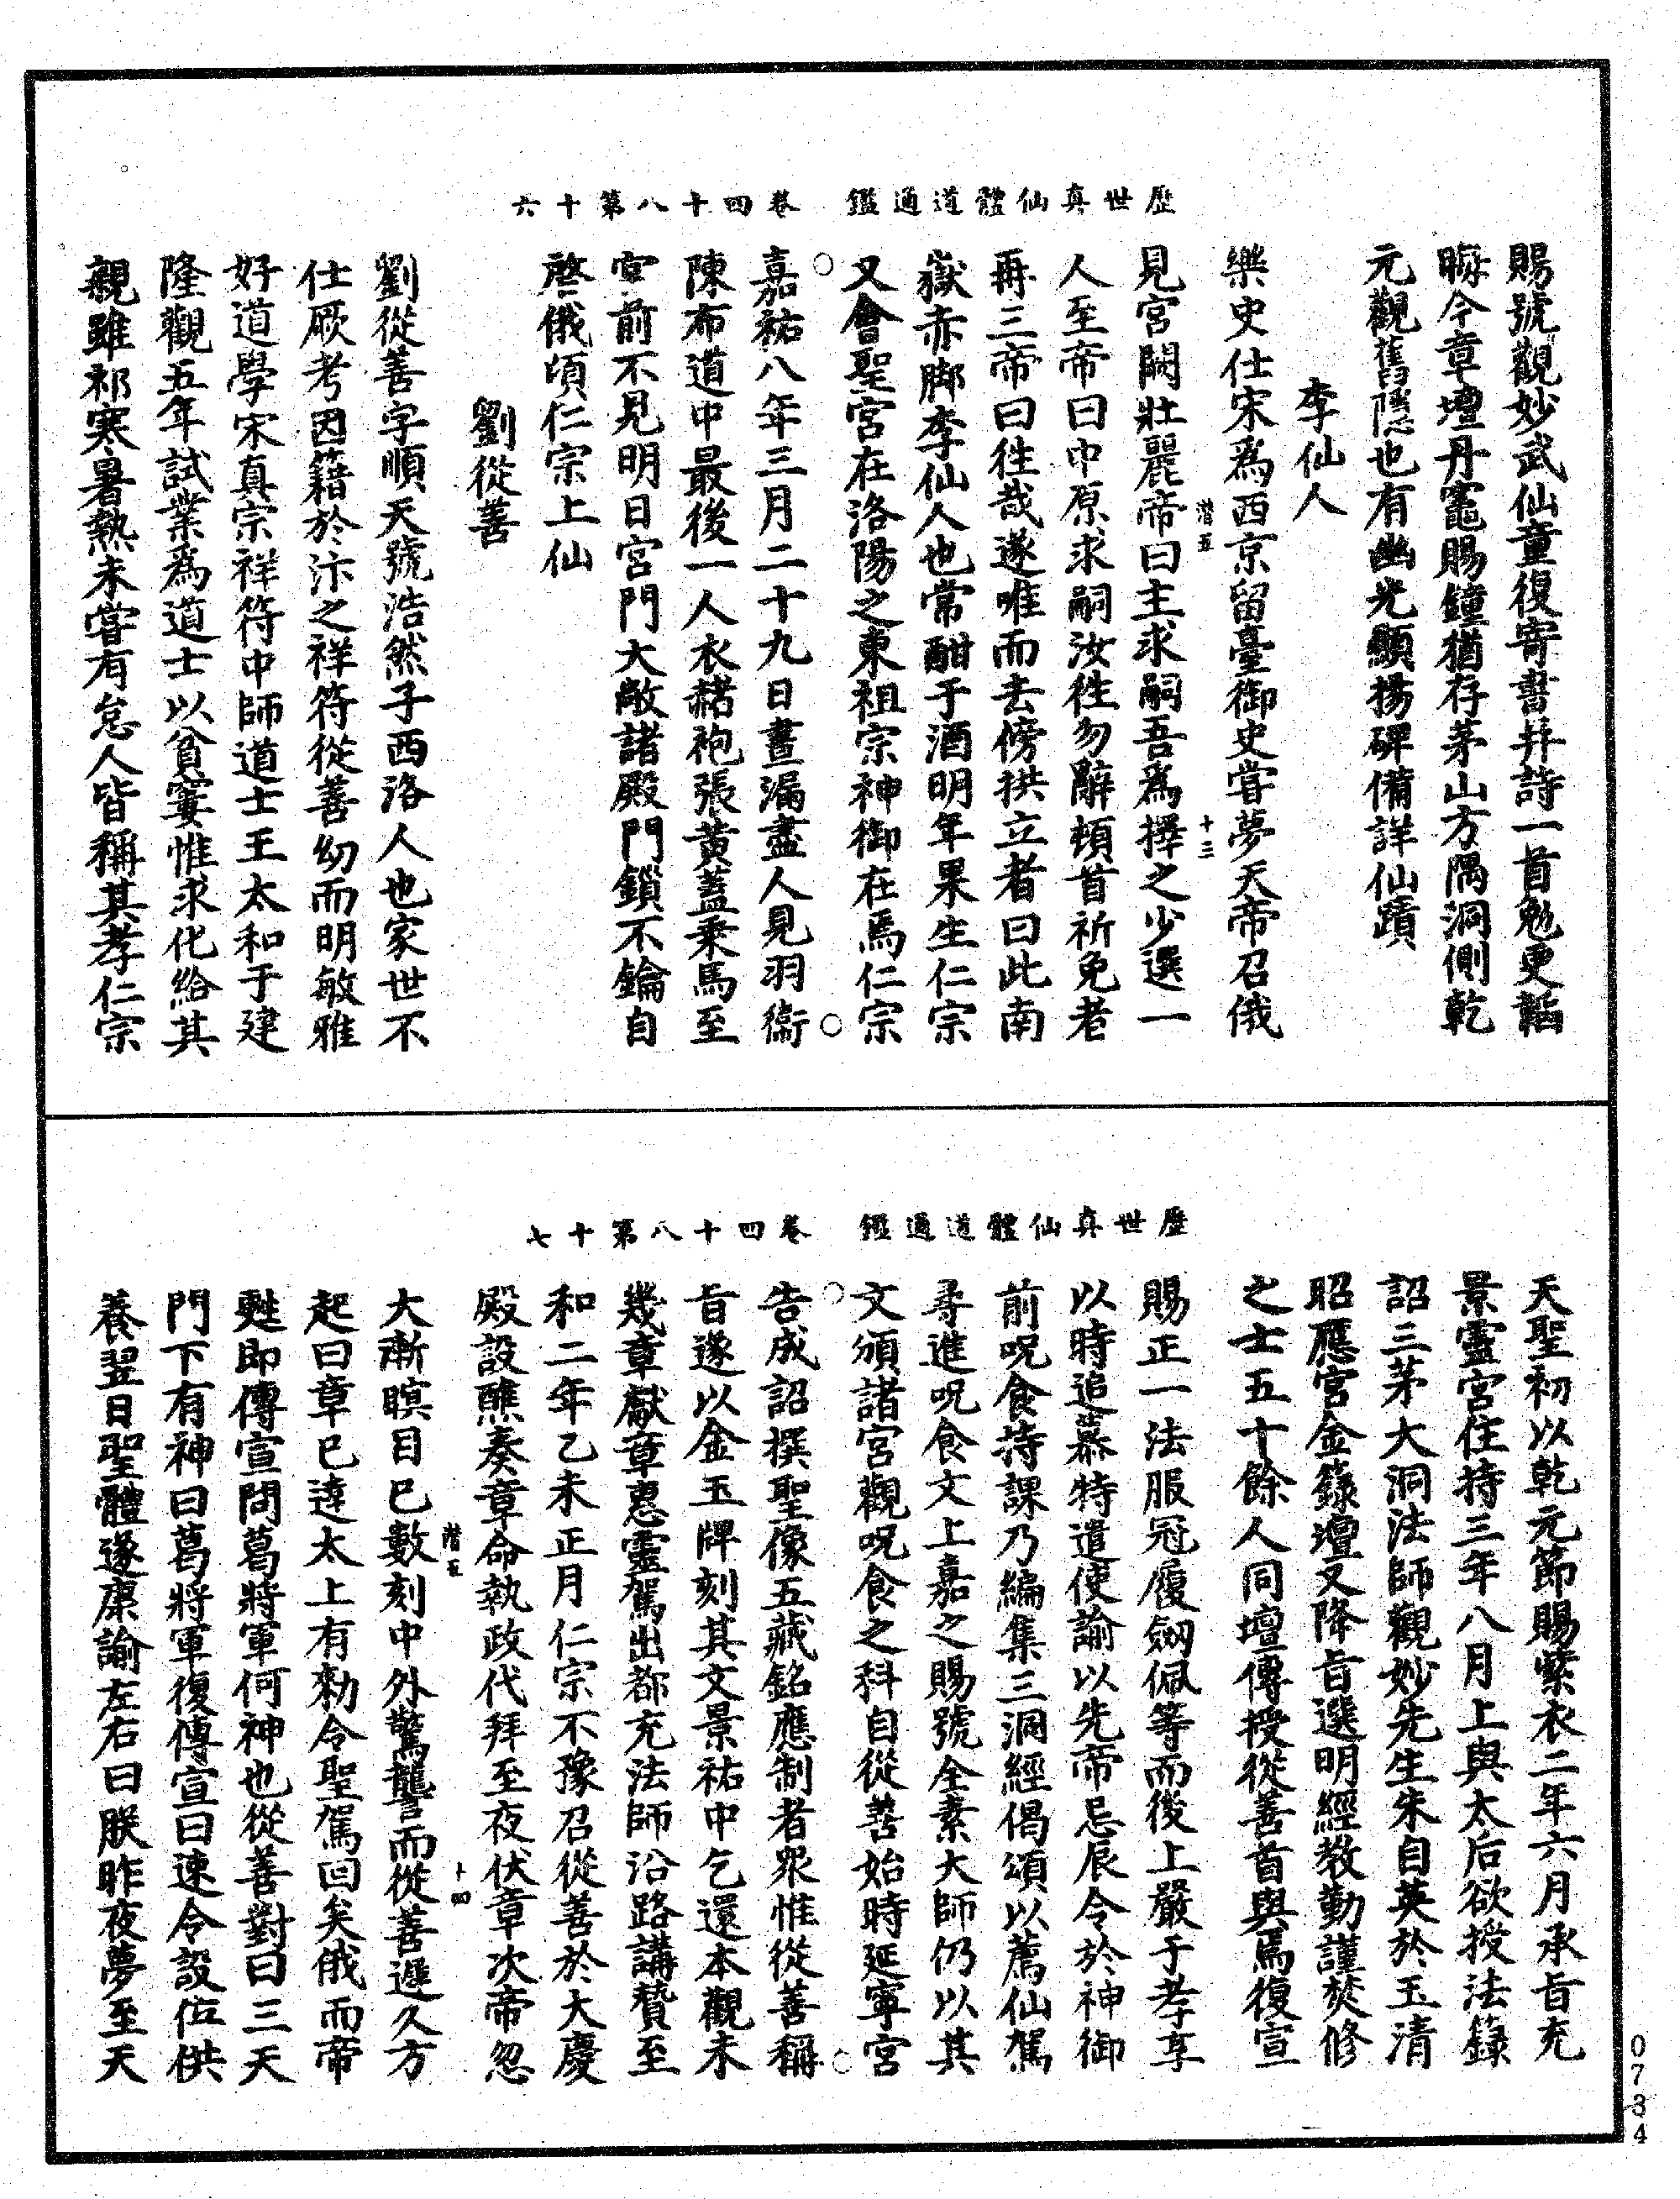 歷世真仙體道通鑑　卷四十八第十六
賜號觀妙武仙童復寄書并詩一首勉更韜
晦今章壇丹竈賜鐘猶存茅山方隅洞側乾
元觀舊隱也有幽光顯揚碑備詳仙蹟
李仙人
樂史仕宋為西京留臺御史嘗夢天帝召俄
潛五
十三
見宮闕壯麗帝曰主求嗣吾為擇之少選一
人至帝曰中原求嗣汝徃勿辭頓首祈免者
再三帝曰徃哉遂唯而去傍拱立者曰此南
嶽赤脚李仙人也常酣于酒明年果生仁宗
又會聖宮在洛陽之東祖宗神御在焉仁宗
嘉祐八年三月二十九日晝漏盡人見羽衞
陳布道中最後一人衣赭袍張黃蓋乘馬至
宮前不見明日宮門大敞諸殿門鎖不鑰自
啓俄頃仁宗上仙
劉從善
劉從善字順天號浩然子西洛人也家世不
仕厥考因籍於汴之祥符從善幼而明敏雅
好道學宋真宗祥符中師道士王太和于建
隆觀五年試業為道士以貧窶惟求化給其
親雖祁寒暑熱未嘗有怠人皆稱其孝仁宗
歷世真仙體道通鑑　卷四十八第十七
天聖初以乾元節賜紫衣二年六月承旨充
景靈宮住持三年八月上與太后欲授法籙
詔三茅大洞法師觀妙先生朱自英於玉清
昭應宮金籙壇又降旨選明經教勤謹焚修
之士五十餘人同壇傳授從善首與焉復宣
賜正一法服冠履劒佩等而後上嚴于孝享
以時追慕特遣使諭以先帝忌辰令於神御
前呪食持課乃編集三洞經偈頌以薦仙駕
尋進呪食文上嘉之賜號全素大師仍以其
文頒諸宮觀呪食之科自從善始時延寧宮
告成詔撰聖像五藏銘應制者眾惟從善稱
旨遂以金玉牌刻其文景祐中乞還本觀未
幾章獻章惠靈駕出都充法師沿路講贊至
和二年乙未正月仁宗不豫召從善於大慶
殿設醮奏章命執政代拜至夜伏章次帝忽
潛五
十四
大漸瞑目已數刻中外驚讋而從善遲久方
起曰章已達太上有勑令聖駕回矣俄而帝
甦即傳宣問葛將軍何神也從善對曰三天
門下有神曰葛將軍復傳宣曰速令設位供
養翌日聖體遂康諭左右曰朕昨夜夢至天
0734